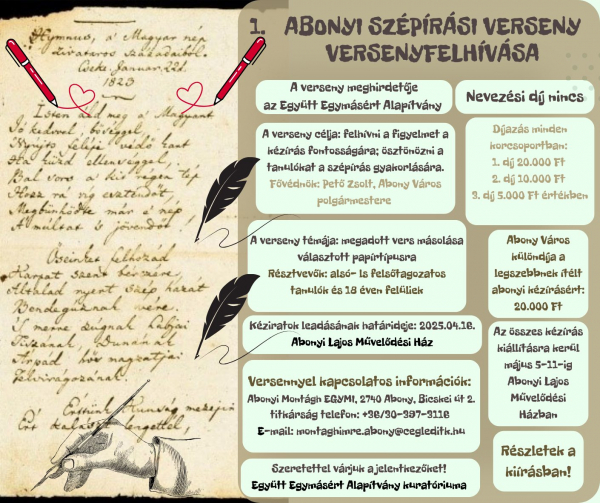 Hymnus, a' Magyar nép
zivataros századaiból.
Cseke, Januar. 22d.
1823
Isten áldd meg a' Magyart
Jó kedvvel, bőséggel,
Nyujts feléje védő kart
Ha küzd ellenséggel,
Bal sors a' kit régen tép
Hozz rá víg esztendőt,
Megbűnhődte már e' nép
A' multat 's jövendőt!
Őseinket felhozád
Kárpát szent bérczére,
Általad nyert szép hazát
Bendegúznak vére.
'S merre zúgnak habjai
Tiszának, Dunának
Árpád hős magzatjai
Felvirágozának.
Értünk Kunság mezején
Ért kalászt lengettél,
1. ABONYI SZÉPÍRÁSI VERSENY
VERSENYFELHÍVÁSA
A verseny meghirdetője
az Együtt Egymásért Alapítvány
Nevezési díj nincs
A verseny célja: felhívni a figyelmet a
kézírás fontosságára; ösztönözni a
tanulókat a szépírás gyakorlására.
Fővédnök: Pető Zsolt, Abony Város
polgármestere
Díjazás minden
korcsoportban:
1. díj 20.000 Ft
2. díj 10.000 Ft
3. díj 5.000 Ft értékben
A verseny témája: megadott vers másolása
választott papírtípusra
Résztvevők: alsó- ls felsőtagozatos
tanulók és 18 éven felüliek
Abony Város
különdíja a
legszebbnek ítélt
abonyi kézírásért:
20.000 Ft
Kéziratok leadásának határideje: 2025.04.16.
Abonyi Lajos Művelődési Ház
Az összes kézírás
kiállításra kerül
május 5-11-ig
Abonyi Lajos
Művelődési
Házban
Versennyel kapcsolatos információk:
Abonyi Montágh EGYMI, 2740 Abony, Bicskei út 2.
titkárság telefon: +36/30-397-3116
E-mail: montaghimre.abony@cegleditk.hu
Részletek a
kiírásban!
Szeretettel várjuk a jelentkezőket!
Együtt Egymásért Alapítvány kuratóriuma